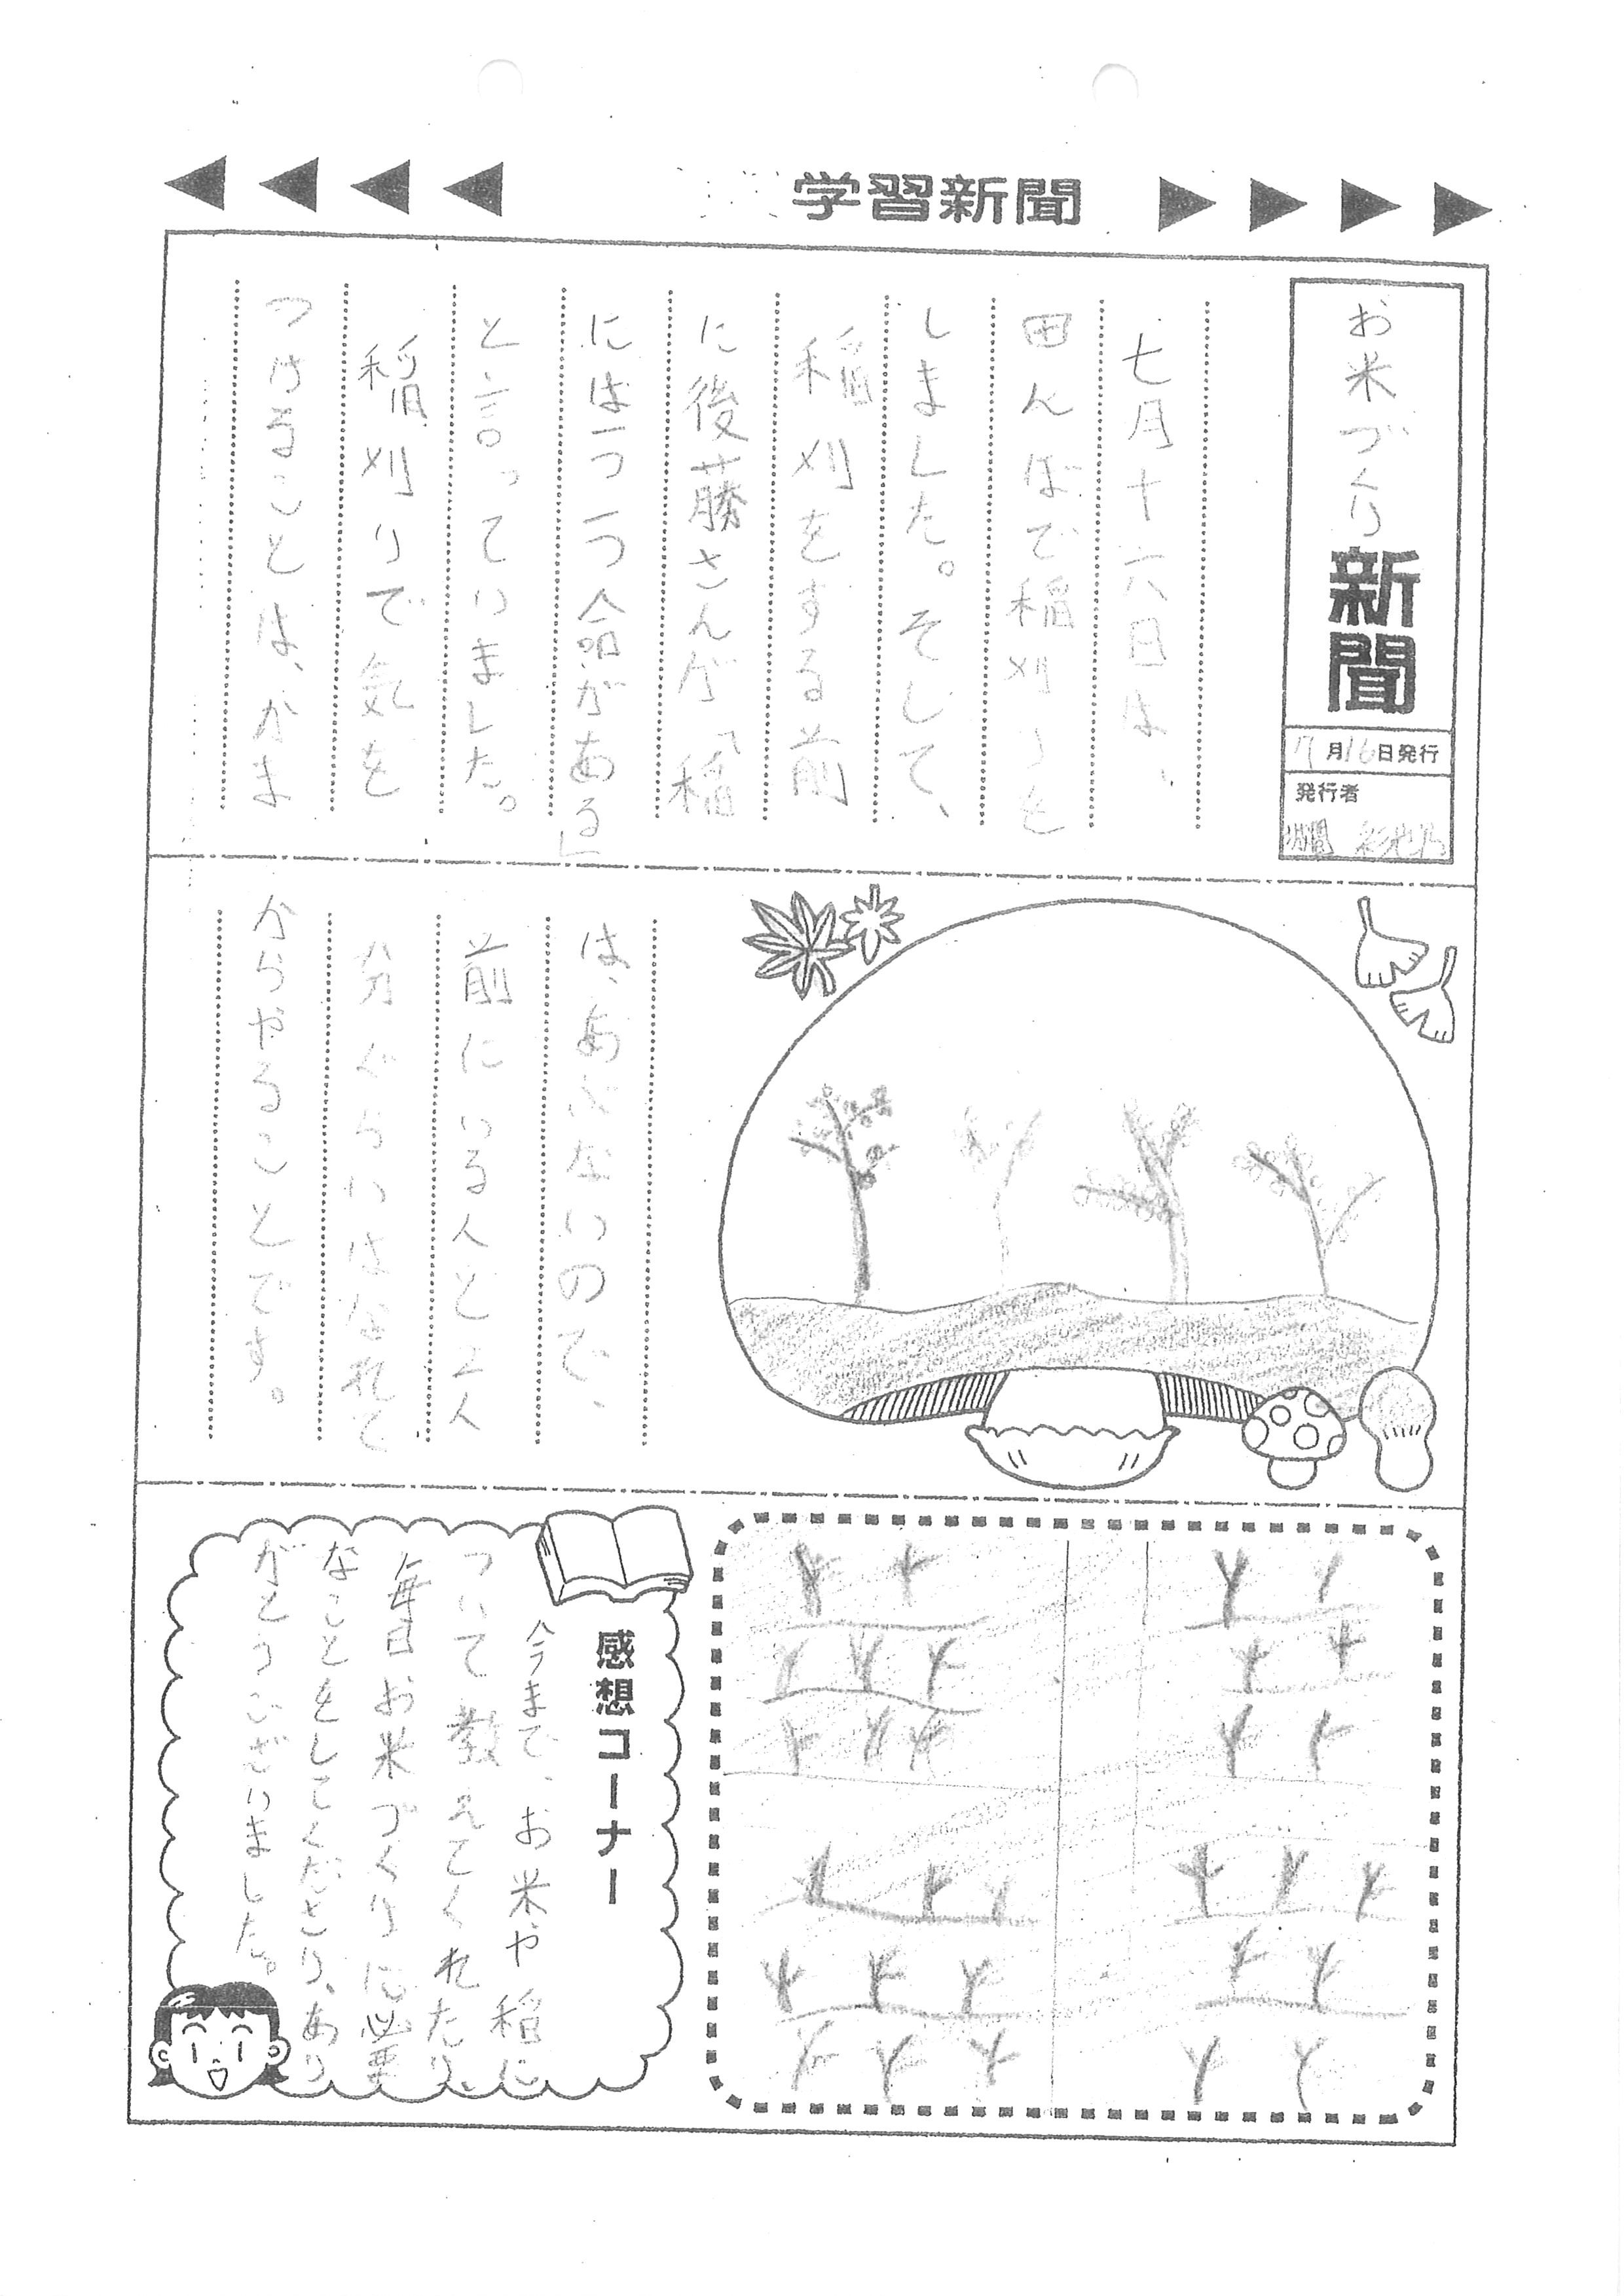 学習新聞
お米づくり新聞
7月16日発行
発行者
七月十六日は、
田んぼで稲刈りを
しました。そして、
稲刈をする前
に後藤さんが「稲
には一つ一つ命がある」
と言っていました。
稲刈りで気を
つけることは、かま
は、あぶないので、
前にいる人と二人
分ぐらいはなれて
からやることです。
感想コーナー
今まで、お米や稲に
ついて教えてくれたり、
毎日お米づくりに必要
なことをしてくださり、あり
がとうございました。